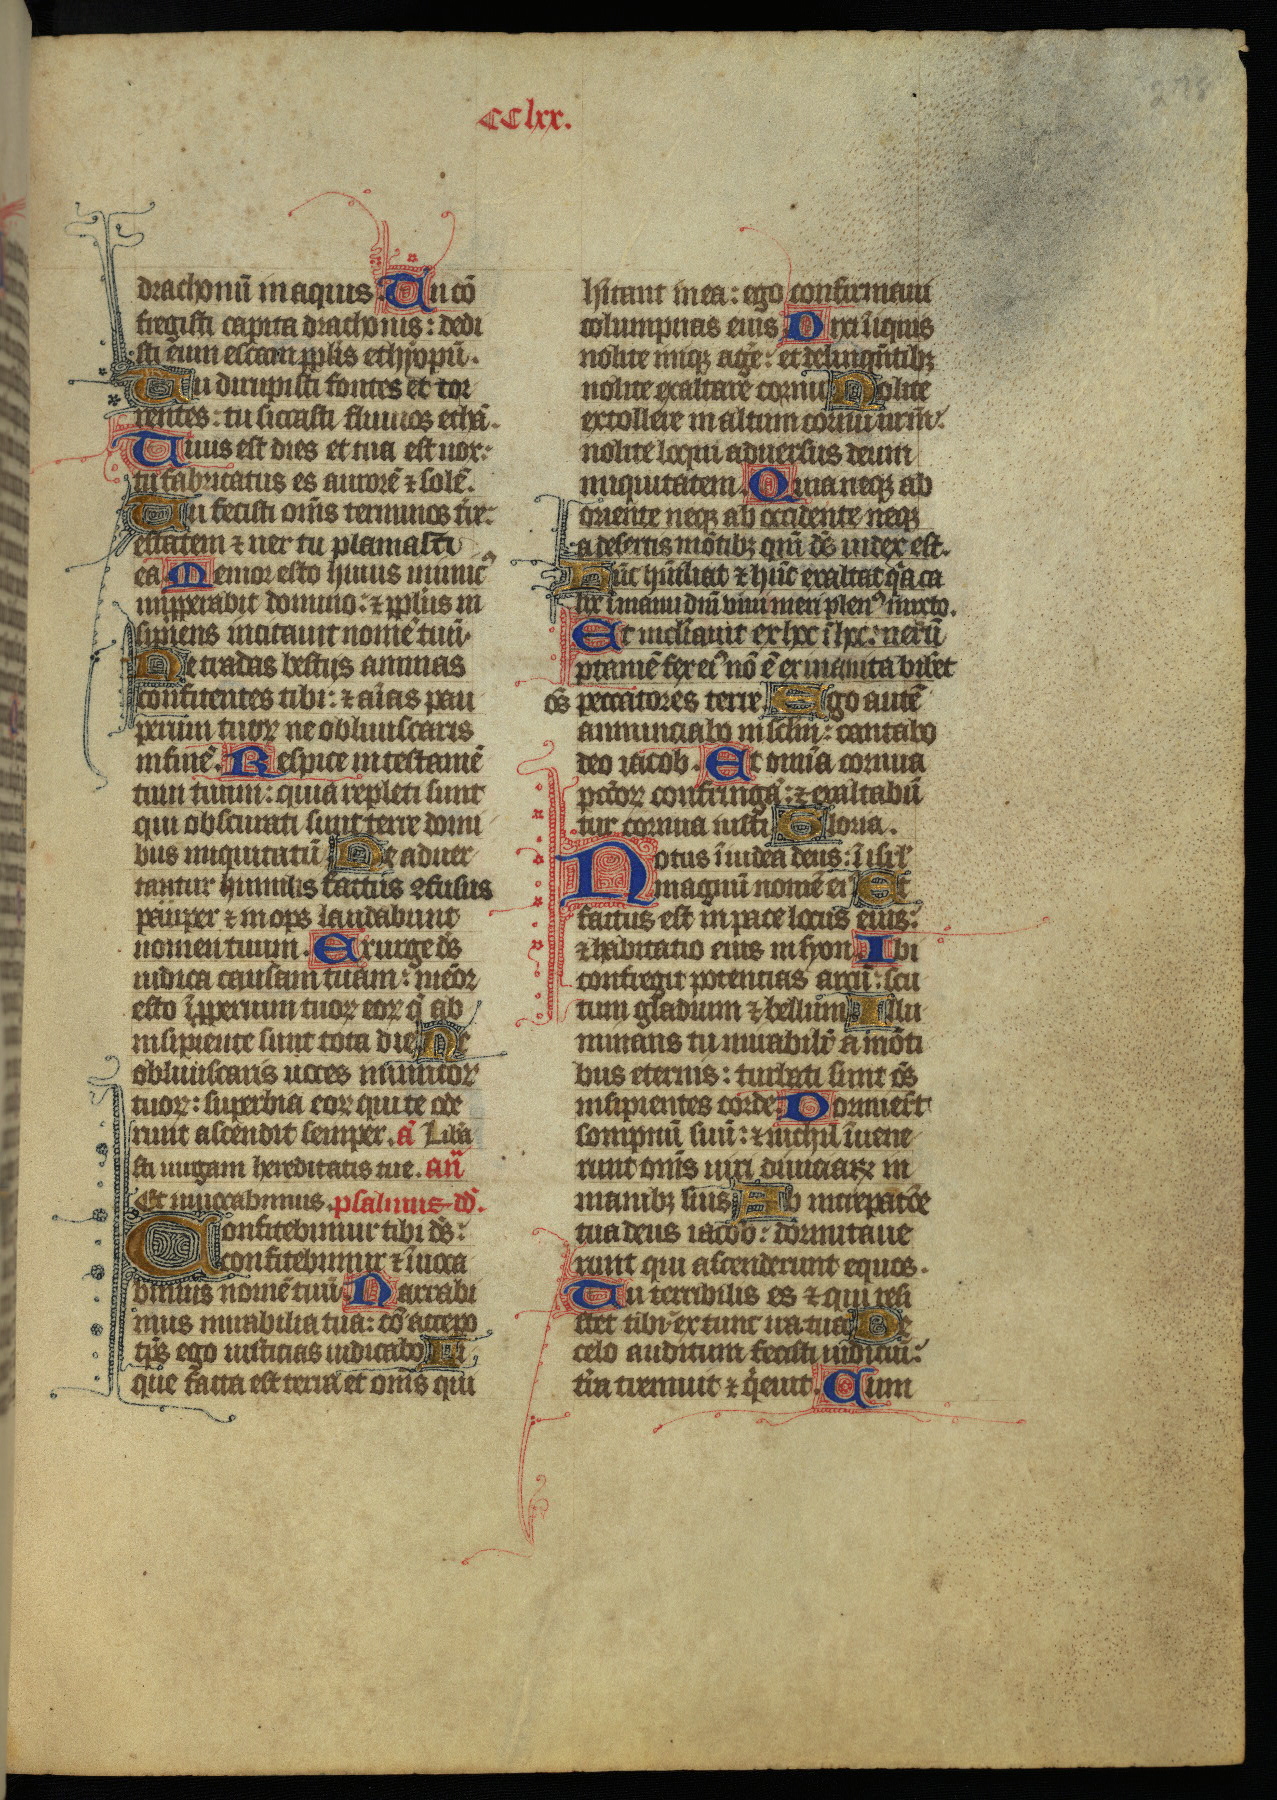 CClxx.
278
drachonū in aquis. Tu cō
fregisti capita drachonis: dedi
sti eum escam pplis ethyopū.
Tu dirupisti fontes et tor
rentes: tu siccasti fluuios ethā.
Tuus est dies et tua est nox:
tu fabricatus es aurorē ⁊ solē.
Tu fecisti om̄s terminos tr̄e:
estatem ⁊ uer tu plamasti
ea. Memor esto huius inimicꝰ
imꝑerabit domino: ⁊ ppl̄us in
sipiens incitauit nomē tuū.
Ne tradas bestijs animas
confitentes tibi: ⁊ aīas pau
perum tuoꝝ ne obliuiscaris
in finē. Respice in testamē
tum tuum: quia repleti sunt
qui obscurati sunt terre domi
bus iniquitatū. Ne aduer
tantur humilis factus ꝯfusus
pauper ⁊ inops laudabunt
nomen tuum. Exurge ds̄
iudica causam tuam: mēor
esto īpperium tuoꝝ eoꝝ q̄ ab
insipiente sunt tota die. Ne
obliuiscaris uoces inimicoꝝ
tuoꝝ: superbia eoꝝ qui te ode
runt ascendit semper. a͞ Libā
sti uirgam hereditatis tue. an̄
Et inuocabimus. psalmus dd̄.
Confitebimur tibi ds̄:
confitebimur ⁊ īuoca
bimus nomē tuū. Narrabi
mus mirabilia tua: cō accepo
tp̄s ego iusticias iudicabo. Li
que facta est terra et om̄s qui
hitant in ea: ego confirmaui
columpnas eius. Dixi īiquis
nolite iniqꝫ agē: et delinquētibꝫ
nolite exaltare cornu. Nolite
extollere in altum cornu urm̄:
nolite loqui aduersus deum
iniquitatem. Quia neqꝫ ab
oriente neqꝫ ab occidente neqꝫ
a desertis mōtibꝫ qm̄ ds̄ iudex est.
Hūc hūiliat ⁊ hūc exaltat q̄a ca
lix ī manu dnī vini meri plenꝰ mixto.
Et inclīauit ex hoc ī hoc: uerū
ptamē fex eiꝰ nō ē exinanita bibēt
om̄s peccatores terre. Ego autē
annunciabo in sclm̄: cantabo
deo iacob. Et omīa cornua
pc̄oꝝ confringā: ⁊ exaltabū
tur cornua iusti. Gloria.
Notus ī iudea deus: ī isrl̄
magnū nomē eiꝰ. Et
factus est in pace locus eius:
⁊ habitatio eius in syon. Ibi
confregit potentias arcū: scu
tum gladium ⁊ bellum. Illu
minans tu mirabilr̄ a mōti
bus eternis: turbati sunt om̄s
insipientes corde. Dormierūt
sompnū suū: ⁊ nichil īuene
runt om̄s uiri diuiciaꝝ in
manibꝫ suis. Ab increpatōe
tua deus iacob: dormitaue
runt qui ascenderunt equos.
Tu terribilis es ⁊ qui resi
stet tibi: ex tunc ira tua. De
celo auditum fecisti iudiciū:
tr̄a tremuit ⁊ q̄euit. Cum